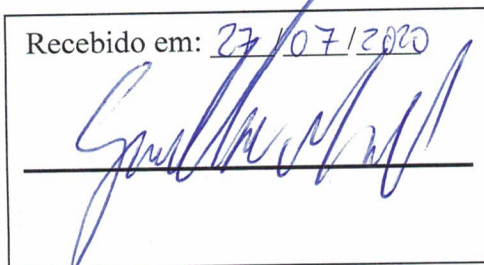 Recebido em: 27/07/2020